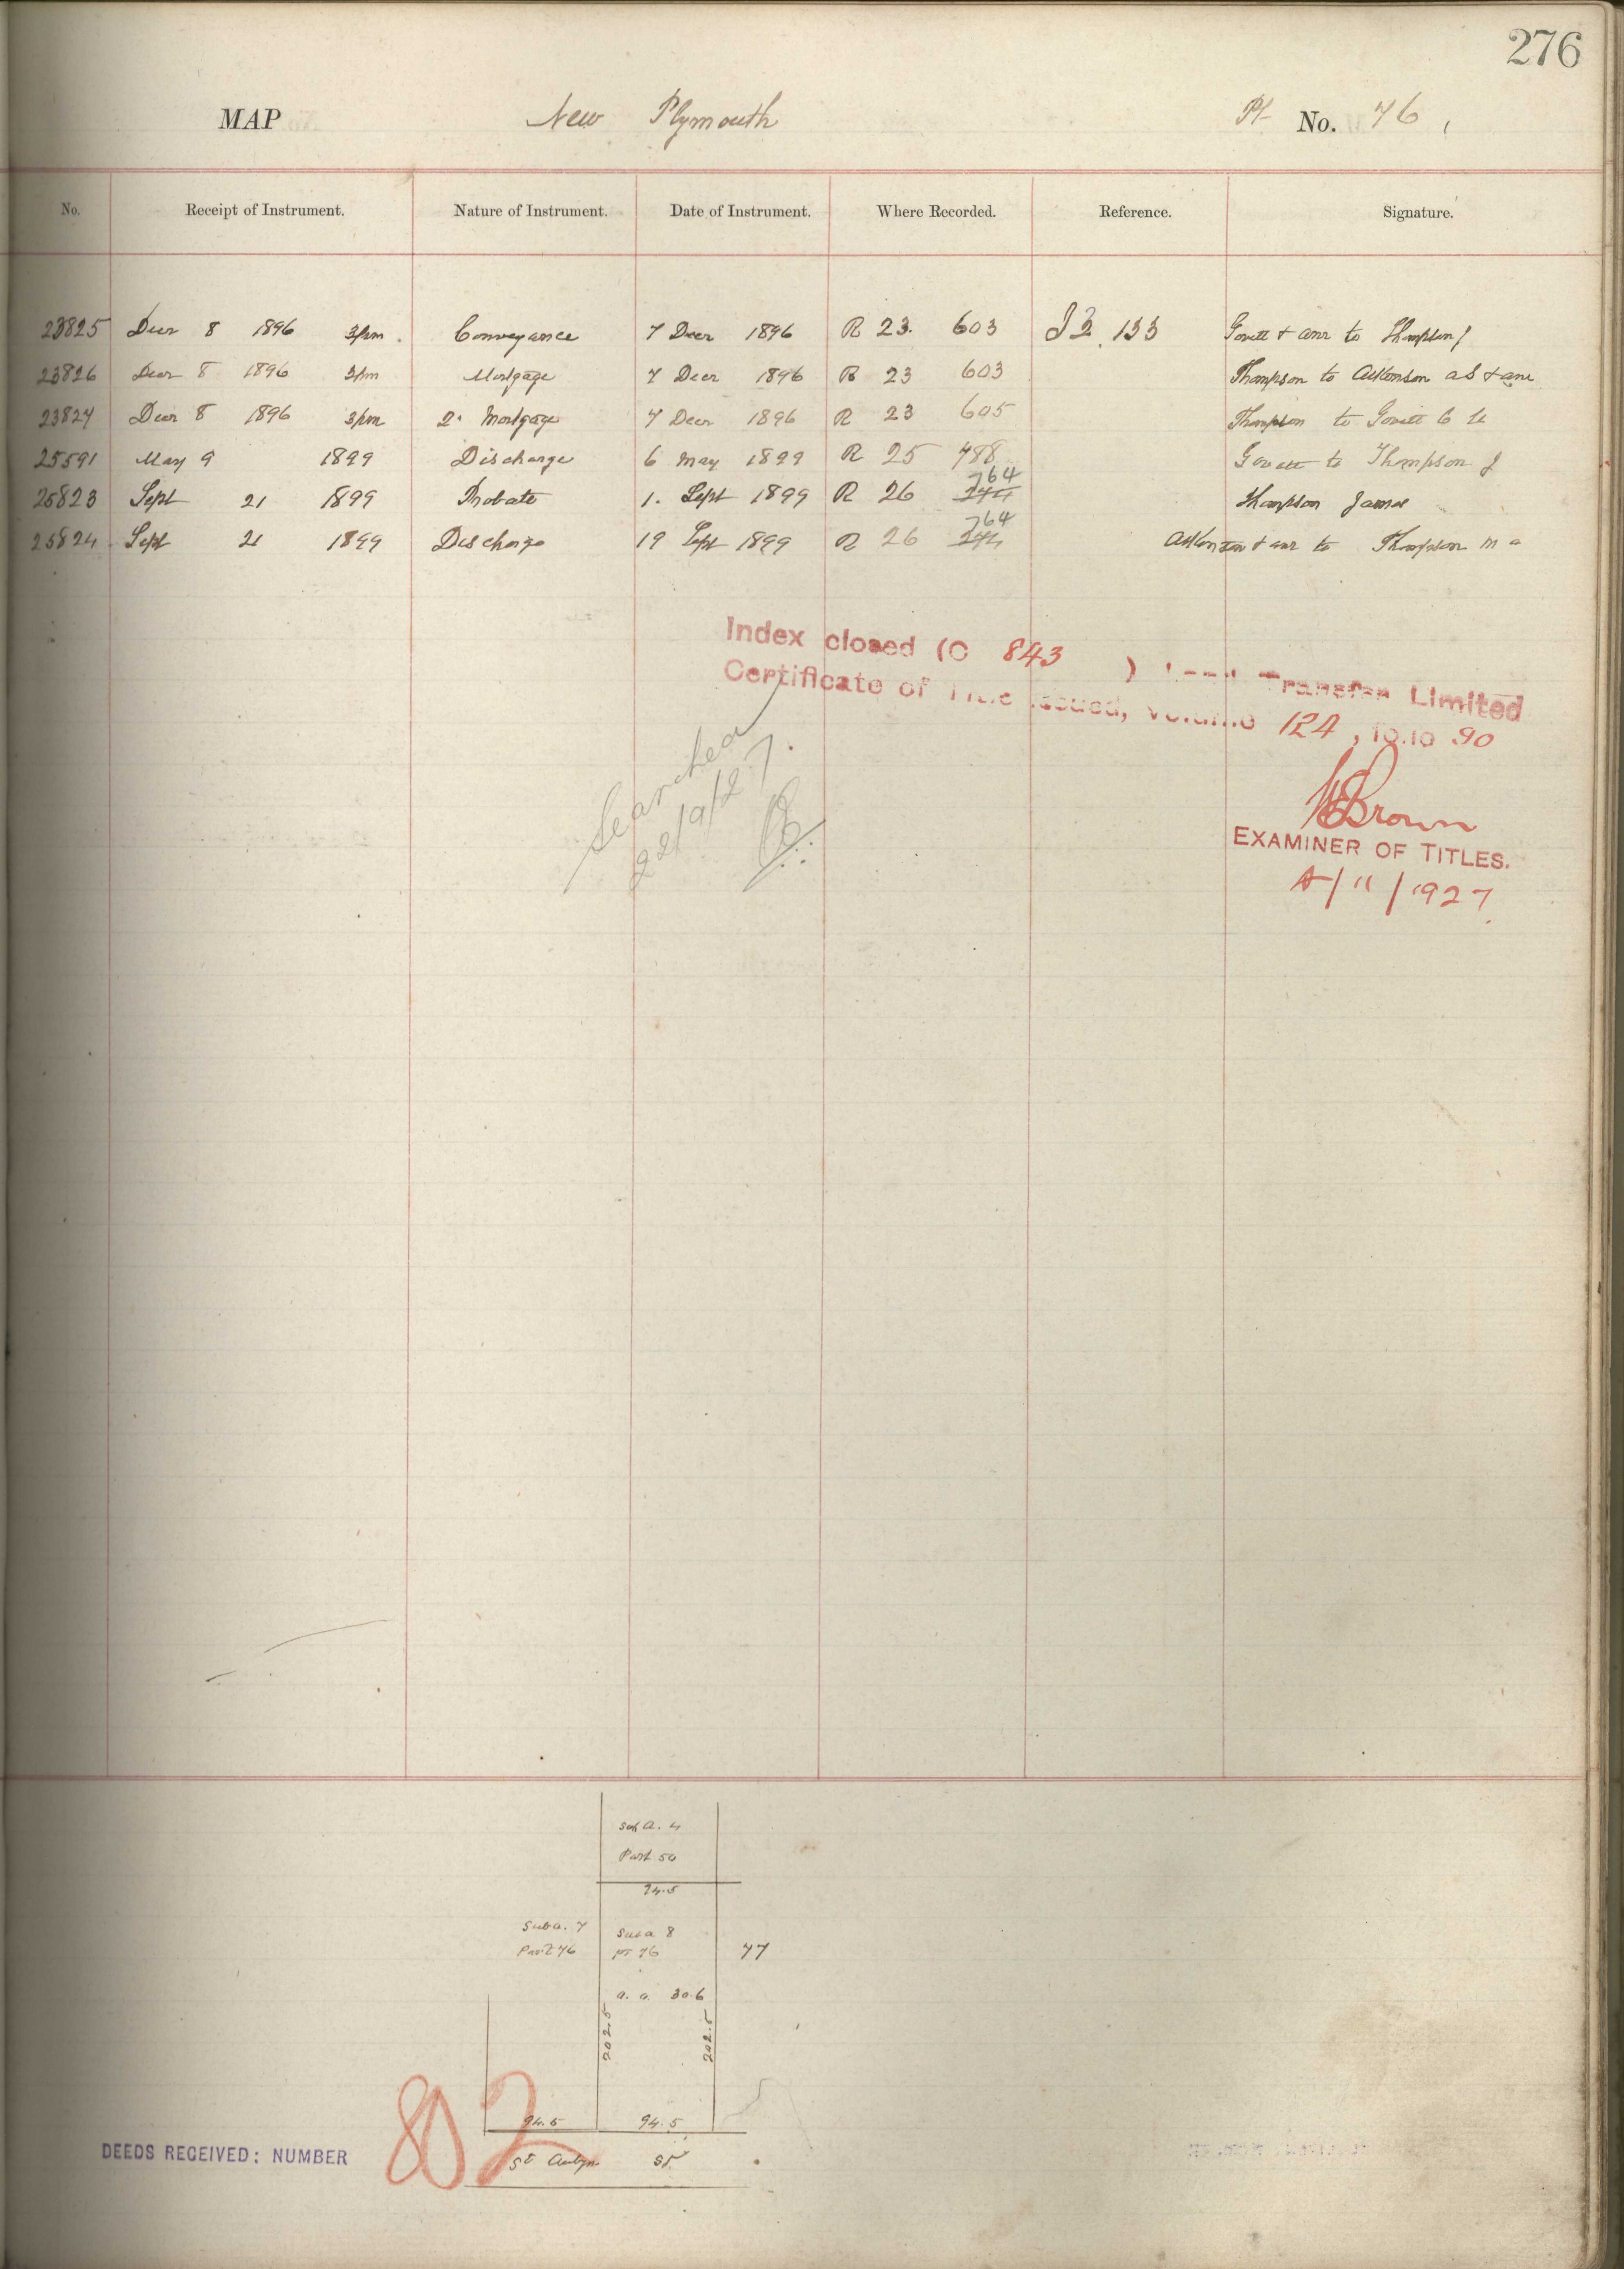 276
MAP New Plymouth Pt No. 76
No. Receipt of Instrument. Nature of Instrument. Date of Instrument. Where Recorded. Reference. Signature.
23825 Decr 8 1896 3pm. Conveyance 7 Decr 1896 R 23. 603 I 2. 133 Govett & anr to Thompson J
23826 Decr 8 1896 3pm Mortgage 7 Decr 1896 R 23 603 Thompson to Atkinson a S & anr
23827 Decr 8 1896 3pm 2. Mortgage 7 Decr 1896 R 23 605 Thompson to Govett C H
25591 May 9 1899 Discharge 6 May 1899 R 25 788 Govett to Thompson J
25823 Sept 21 1899 Probate 1. Sept 1899 R 26 764 Thompson James
25824 Sept 21 1899 Discharge 19 Sept 1899 R 26 764 Atkinson & anr to Thompson M a
Index closed (C 843 ) Land Transfer Limited
Certificate of Title issued, Volume 124, 90
Searched
22/9/27.
Brown
EXAMINER OF TITLES.
4/11/1927
Part 50
94.5
Suba. 7 Suba 8
Part 76 pt 76 77
a. o. 30.6
202.5 202.5
94.5 94.5
802
DEEDS RECEIVED: NUMBER
St Aubyn St